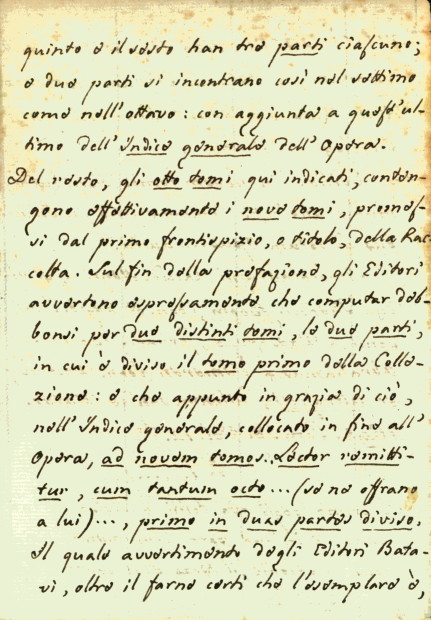 quinto e il sesto han tre parti ciascuno;
e due parti si incontrano così nel settimo
come nell'ottavo: con aggiunta a quest'ul-
timo dell'Indice generale dell'Opera.
Del resto, gli otto tomi qui indicati, conten-
gono effettivamente i nove tomi, promes-
si dal primo frontispizio, o titolo, della Rac-
colta. Sul fin della prefazione, gli Editori
avvertono espressamente che computar deb-
bonsi per due distinti tomi, le due parti,
in cui è diviso il tomo primo della Colle-
zione: e che appunto in grazia di ciò,
nell'Indice generale, collocato in fine all'
Opera, ad novem tomos Lector remitti-
tur, cum tantum octo... (se ne offrano
a lui)..., primo in duas partes diviso.
Il quale avvertimento degli Editori Bata-
vi, oltre il farne certi che l'esemplare è,